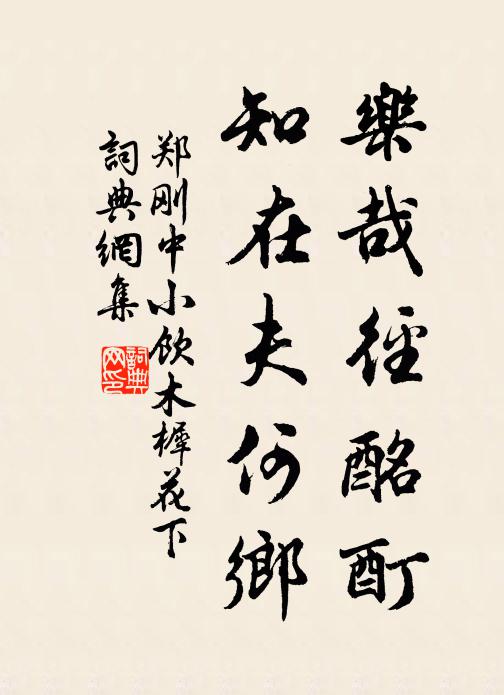 樂哉徑酩酊
知在夫何鄉
郑刚中小饮木樨花下
詞典網集
詞典网印